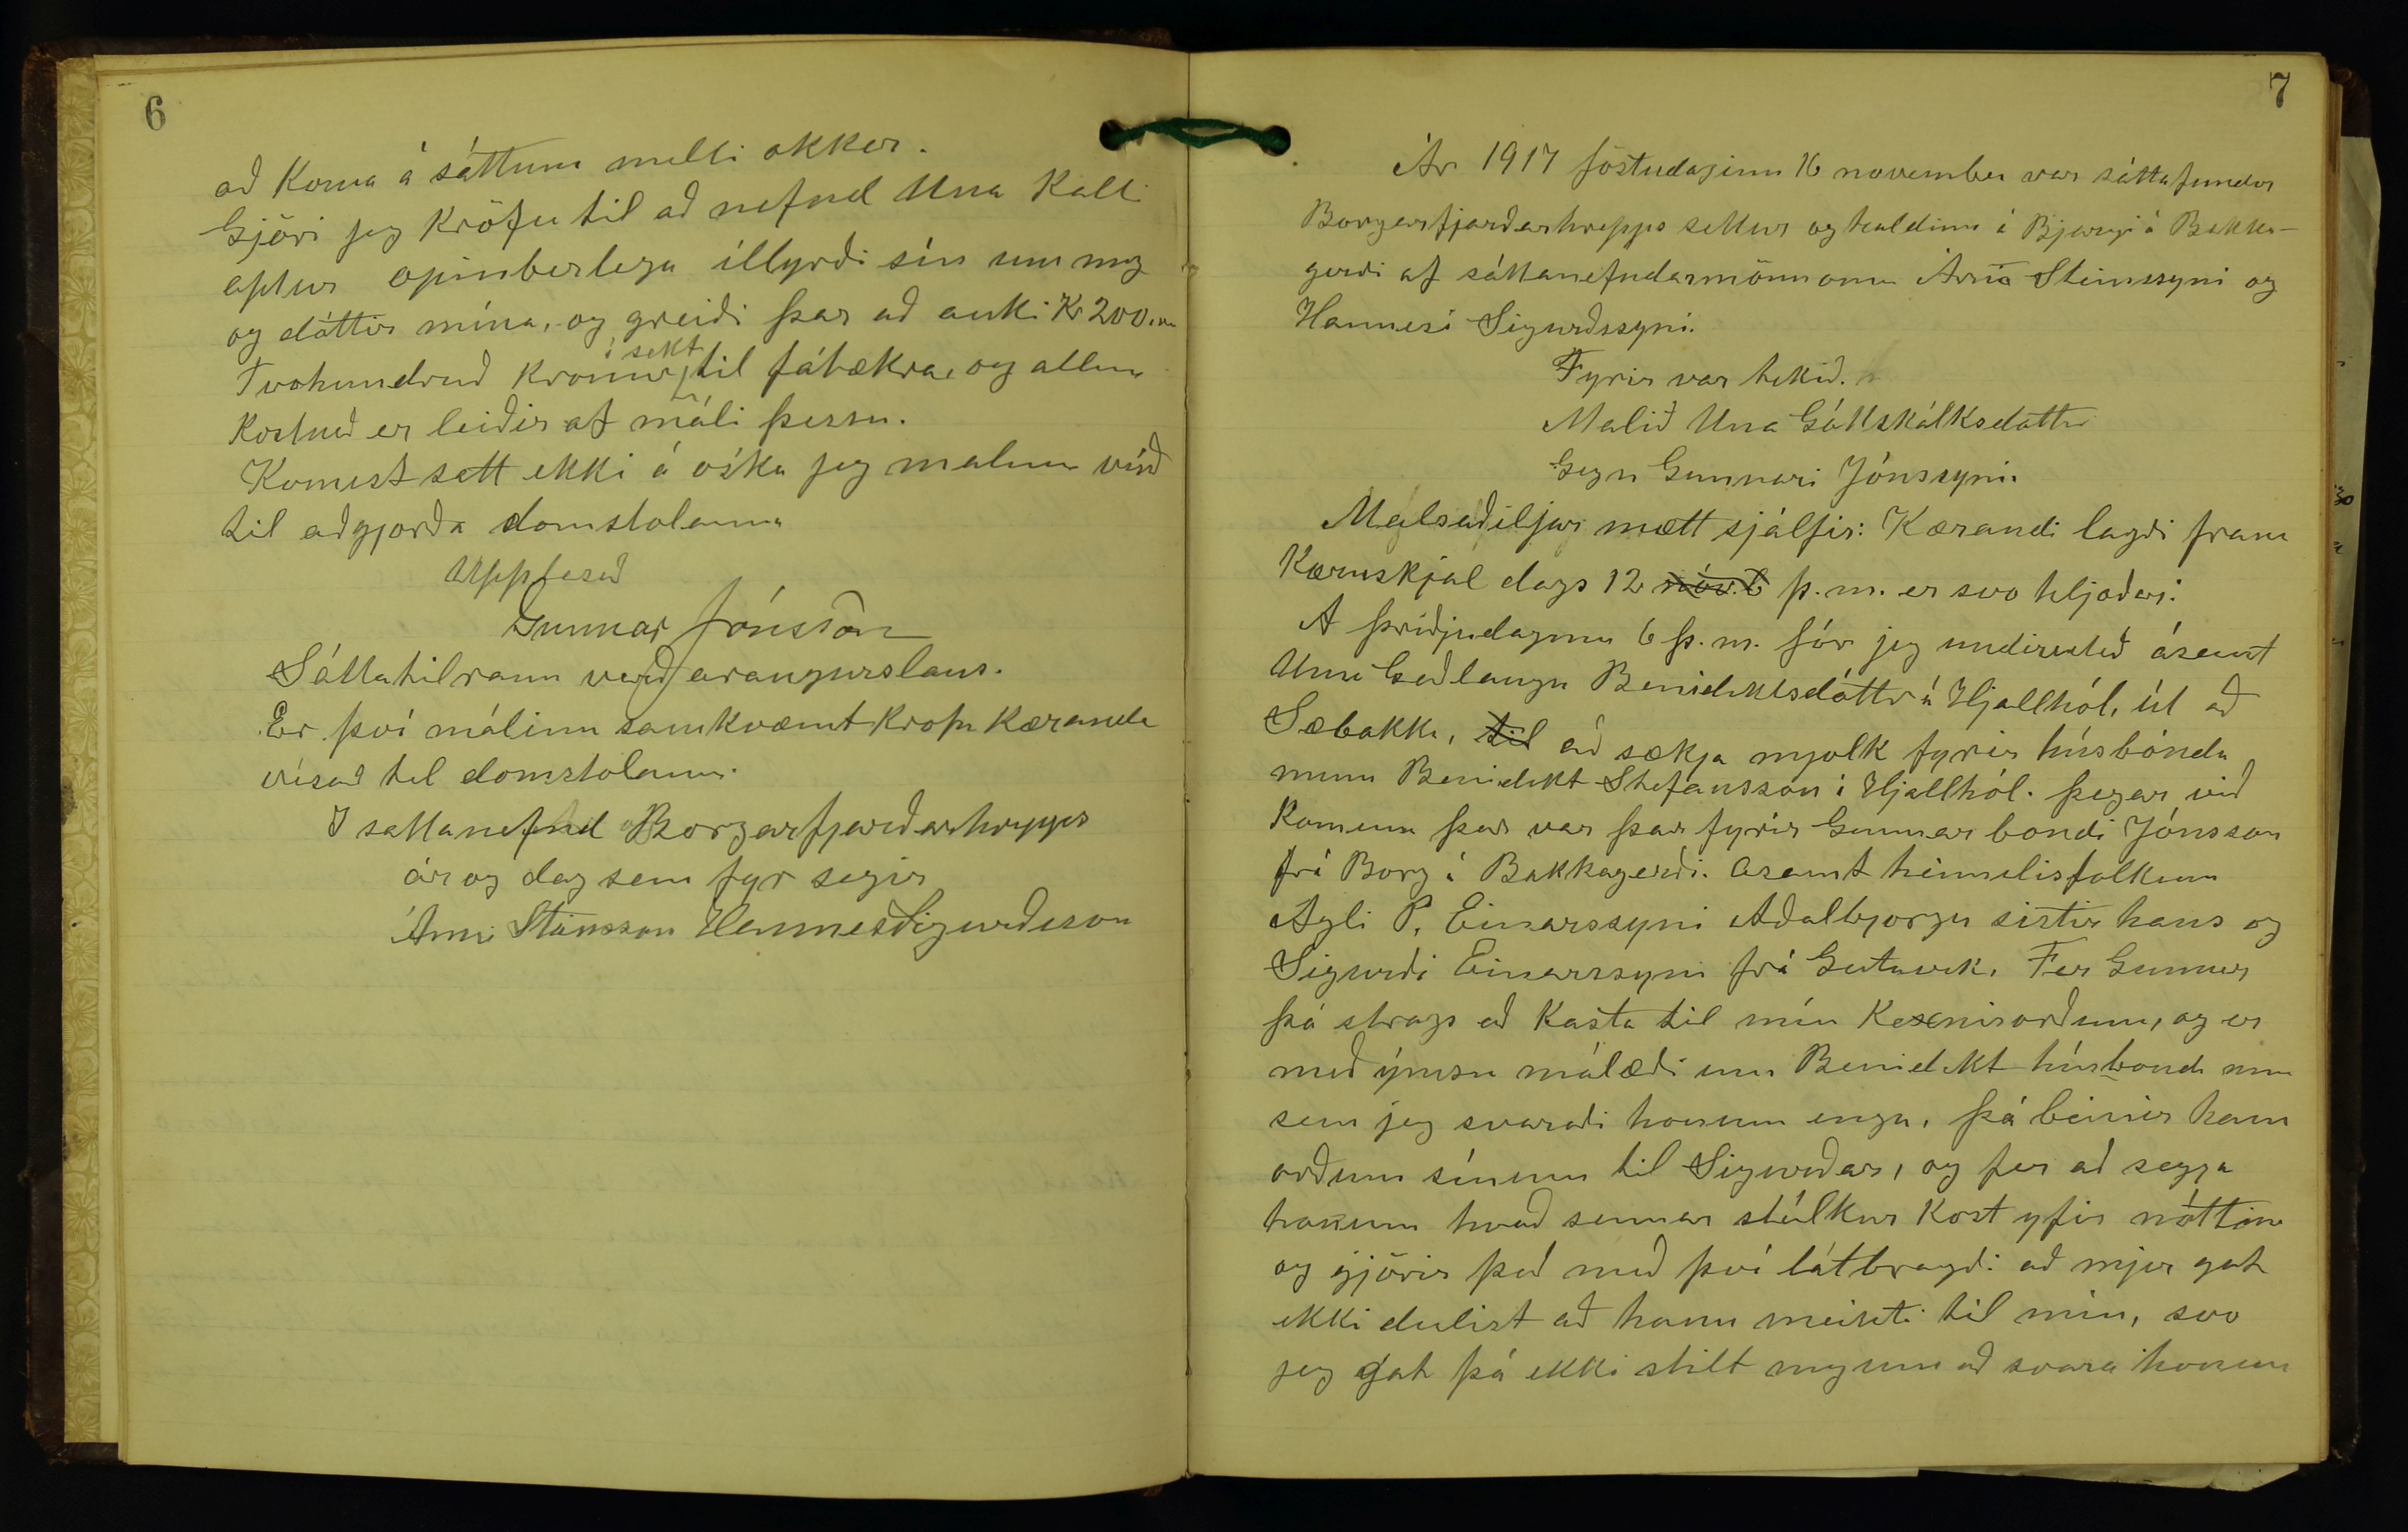 6
að koma á sáttum milli okkar.
Gjöri jeg kröfu til að nefnd Una kalli
aptur opinberlega illyrði sín um mig
og dóttir mína, og greiði þar að auki Kr 200.00
Tvohundruð kronur í sekt til fátækra, og allan
kostnað er leiðir af máli þessu.
Komist sátt ekki á óska jeg malinu vísað
til aðgjorða domstolanna
Upplesið
Gunnar Jónsson
Sáttatilraun varð arangurslaus.
Er því málinu samkvæmt krofu kæranda
vísað til domstolanna.
I sattanefnd Borgarfjarðarhrepps
ár og dag sem fyr segir
Árni Steinsson Hannes Sigurðsson
7
Ár 1917 föstudaginn 16 november var sáttafundur
Borgarfjarðarhrepps settur og haldinn á Bjargi á Bakka-
gerði af sáttanefndarmönnonum Árna Steinssyni og
Hannesi Sigurðssyni.
Fyrir var tekið.
Malið Una Gottskálksdottir
Gegn Gunnari Jónssyni.
Malsaðiljar mætt sjálfir: Kærandi lagði fram
Kæruskjal dags 12 nóv.b þ.m. er svo hljoðar:
A þriðjudaginn 6 þ.m. fór jeg undirrituð ásamt
Unni Guðlaugu Benidiktsdóttr á Hjallhól, út að
Sæbakka, til að sækja mjolk fyrir húsbónda
minn Benidikt Stefansson í Hjallhól. þegar við
komum þar var þar fyrir Gunnar bondi Jónsson
frá Borg í Bakkagerði. asamt heimilisfolkinu
Agli P. Einarssyni Aðalbjorgu sistir hans og
Sigurði Einarssyni frá Geitavík. Fer Gunnar
þá strags að kasta til mín kexnisorðum, og er
með ýmsu málæði um Benidikt húsbonda minn
sem jeg svaraði honum engu. þá beinir hann
orðum sínum til Sigurðar, og fer að segja
honum hvað sumar stúlkur kost yfir nóttina
og gjörir það með því látbragði að mjer gat
ekki dulist að hann meinti til mín, svo
jeg gat þá ekki stilt mig um að svara honum